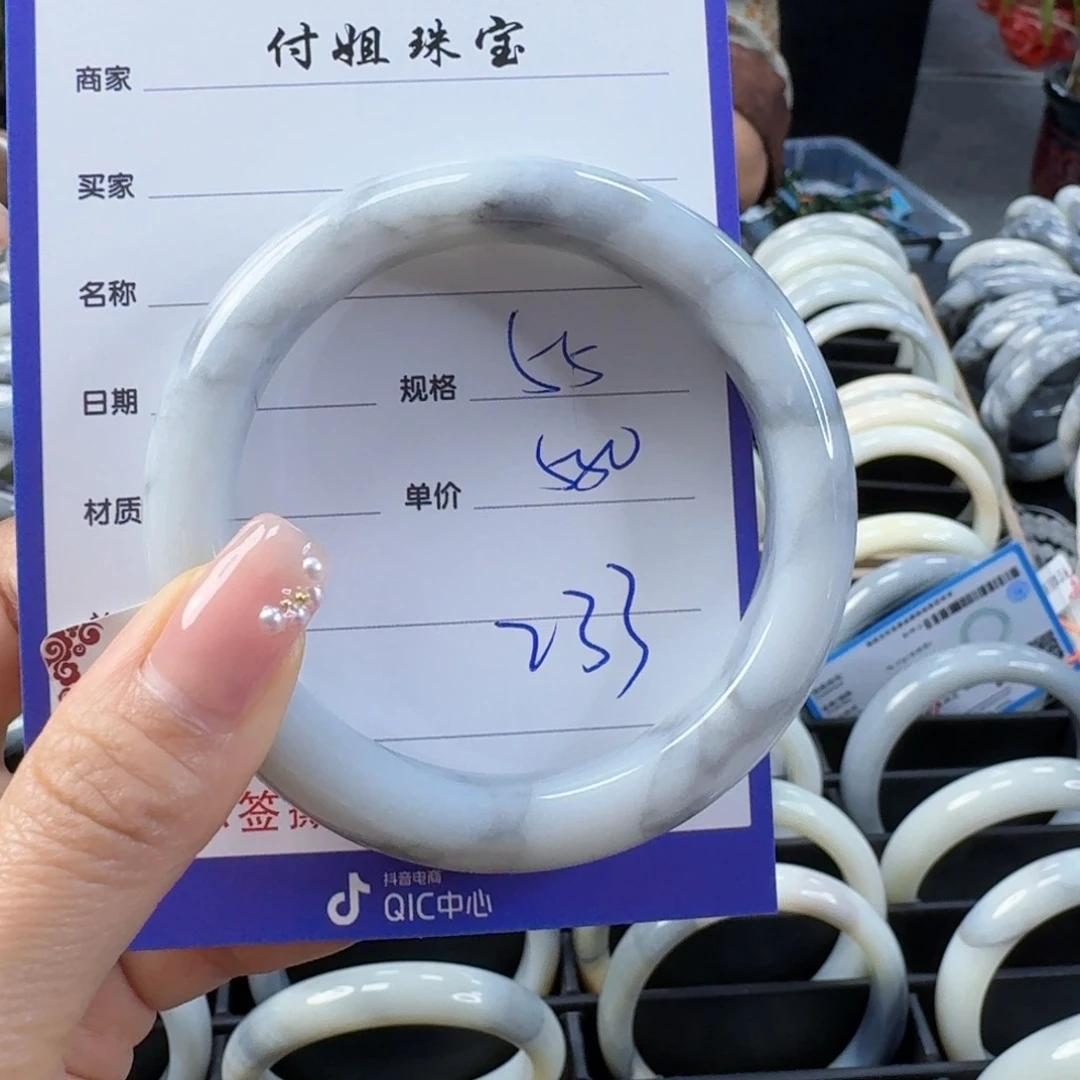 付姐珠宝
商家
买家
名称
日期 规格 55
材质 单价 580
233
签
抖音电商
QIC中心